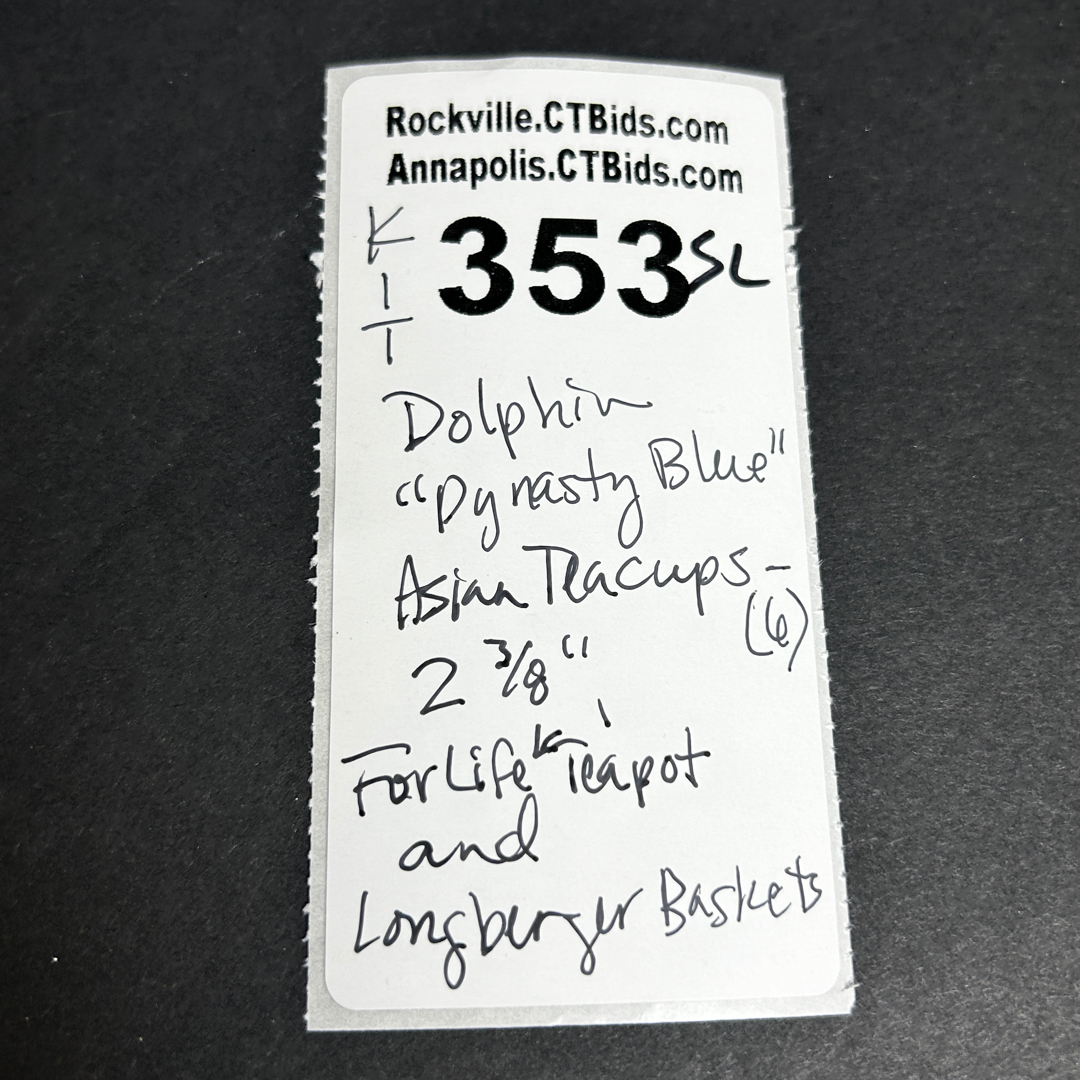 Rockville.CTBids.com
Annapolis.CTBids.com
KIT
353 SL
Dolphin
"Dynasty Blue"
Asian Teacups -
(6)
2 3/8"
ForLife Teapot
and
Longberger Baskets